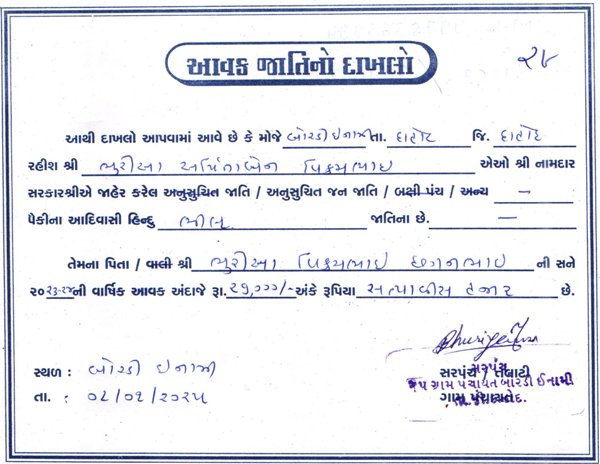 આવક જાતિનો દાખલો
૨૮
આથી દાખલો આપવામાં આવે છે કે મોજે બોરડી ઈનામી તા. દાહોદ જિ. દાહોદ
રહીશ શ્રી ભુરીઆ અર્પિતાબેન વિક્રમભાઇ એઓ શ્રી નામદાર
સરકારશ્રીએ જાહેર કરેલ અનુસુચિત જાતિ / અનુસુચિત જન જાતિ / બક્ષી પંચ / અન્ય —
પૈકીના આદિવાસી હિન્દુ ભીલ જાતિના છે. —
તેમના પિતા / વાલી શ્રી ભુરીઆ વિક્રમભાઇ છગનભાઇ ની સને
૨૦૨૩-૨૪ની વાર્ષિક આવક અંદાજે રૂા. ૨૭,૦૦૦/- અંકે રૂપિયા સત્યાવીસ હજાર છે.
સ્થળ : બોરડી ઈનામી
સરપંચ / તલાટી
સરપંચ
ગ્રામ પંચાયત બોરડી ઈનામી
તા. : ૦૮/૦૧/૨૦૨૫
ગ્રામ પંચાયત